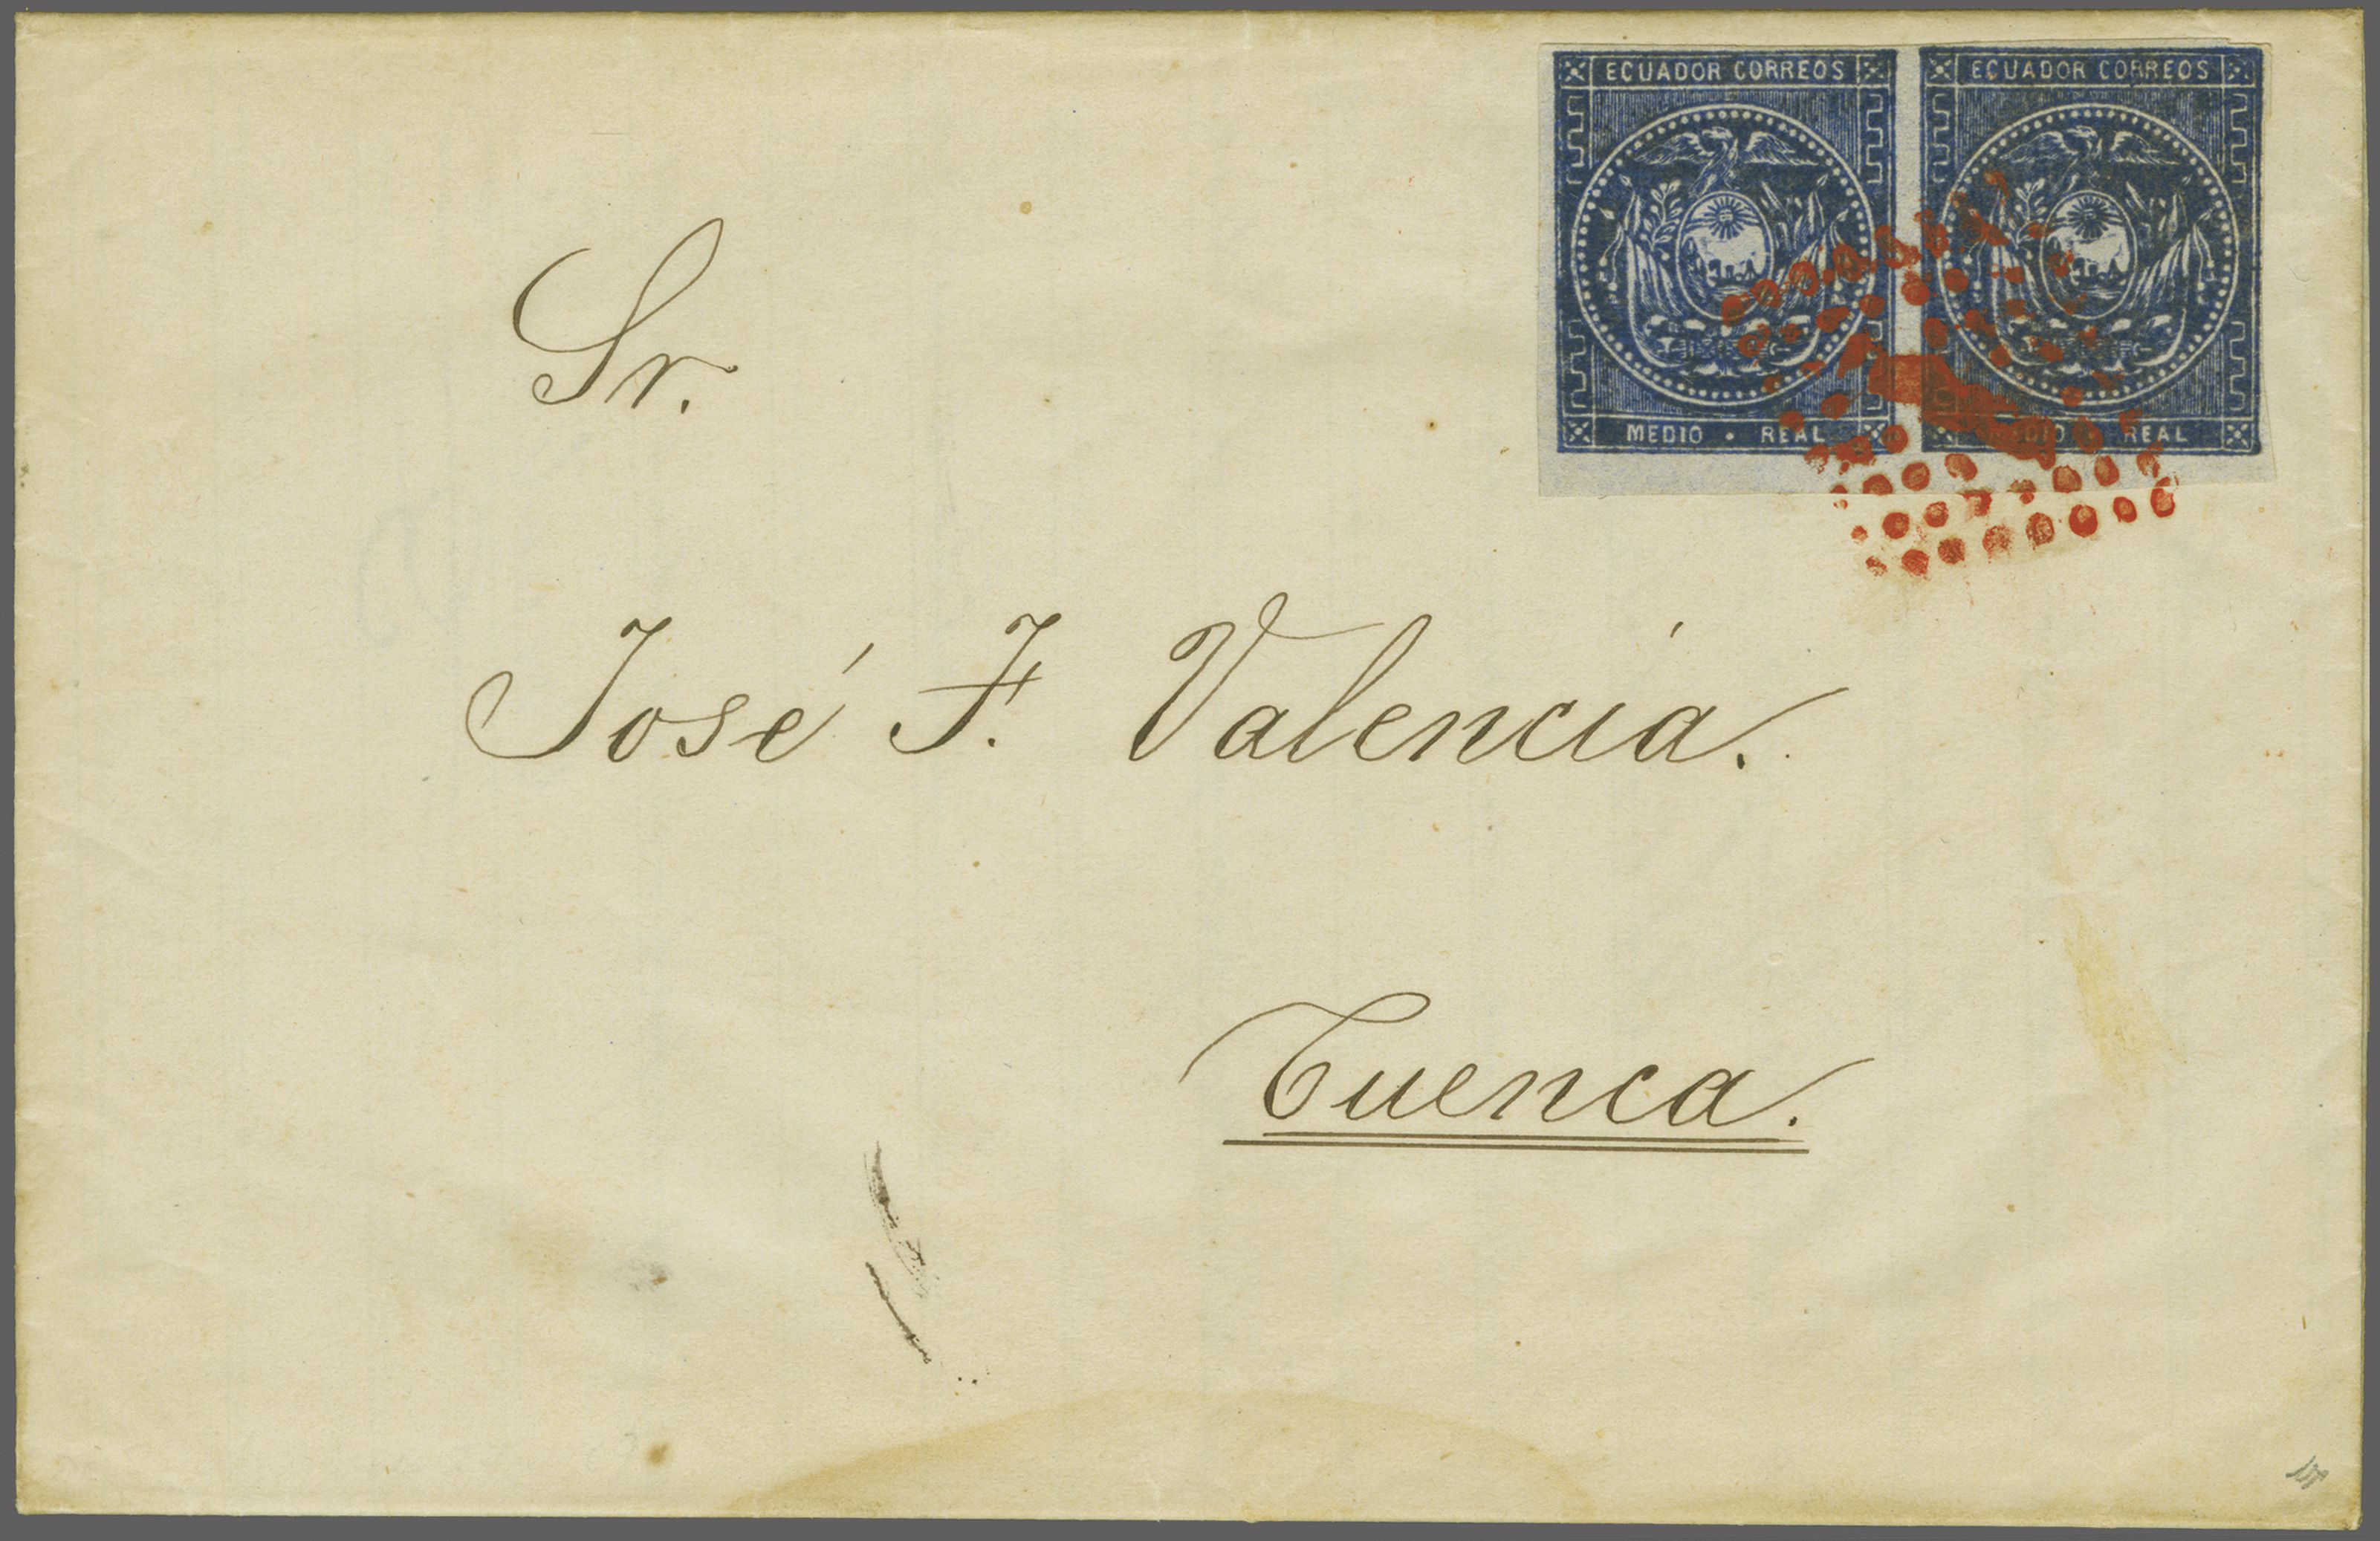 ECUADOR CORREOS ECUADOR CORREOS
MEDIO • REAL REAL
Sr.
José F. Valencia.
Cuenca.